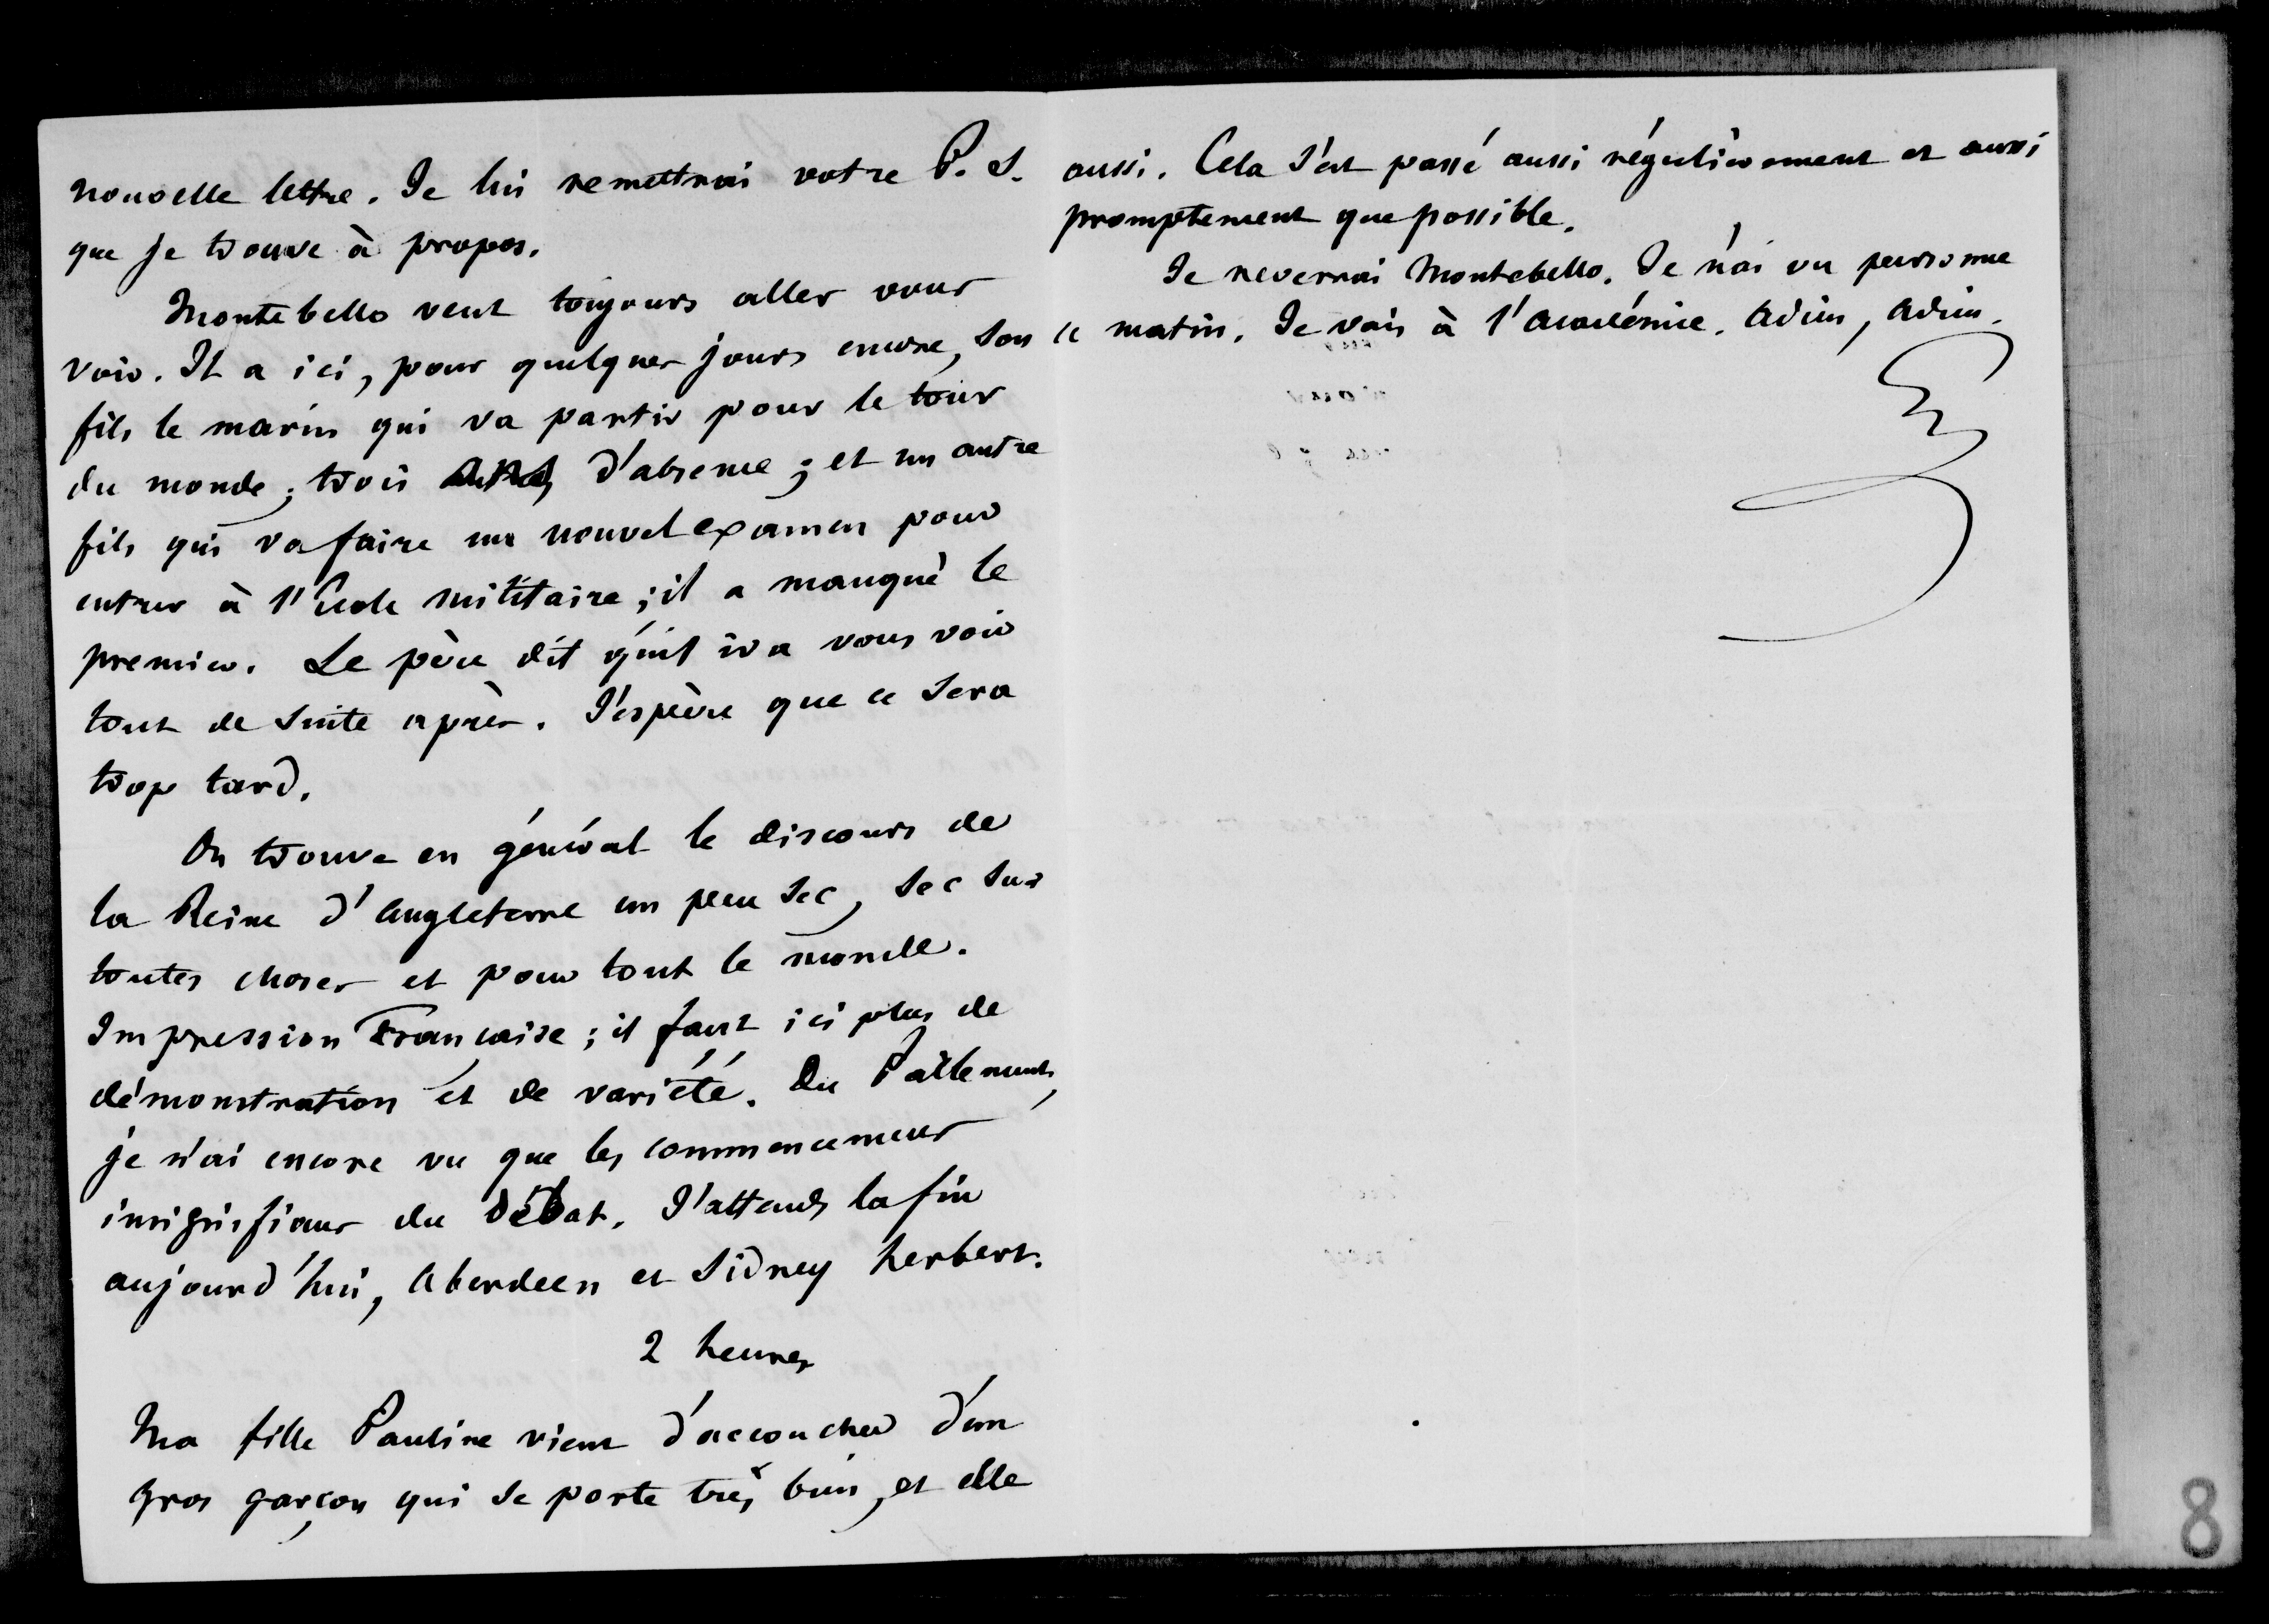 nouvelle lettre. Je lui remettrai votre P. S.
que je trouve à propos.
Montebello veut toujours aller vous
voir. Il a ici, pour quelques jours encore, son
fils le marin qui va partir pour le tour
du monde ; trois ans d'absence ; et un autre
fils qui va faire un nouvel examen pour
entrer à l'Ecole militaire ; il a manqué le
premier. Le père dit qu'il ira vous voir
tout de suite après. J'espère que ce sera
trop tard.
On trouve en général le discours de
la Reine d'Angleterre un peu sec, sec sur
toutes choses et pour tout le monde.
Impression Française ; il faut ici plus de
démonstration et de variété. Du Parlement,
je n'ai encore vu que les commencemens
insignifians du débat. J'attends la fin
aujourd'hui, Aberdeen et Sidney Herbert.
2 heures
Ma fille Pauline vient d'accoucher d'un
gros garçon qui se porte très bien, et elle
aussi. Cela s'est passé aussi régulièrement et aussi
promptement que possible.
Je reverrai Montebello. Je n'ai vu personne
ce matin. Je vais à l'Académie. Adieu, Adieu.
8